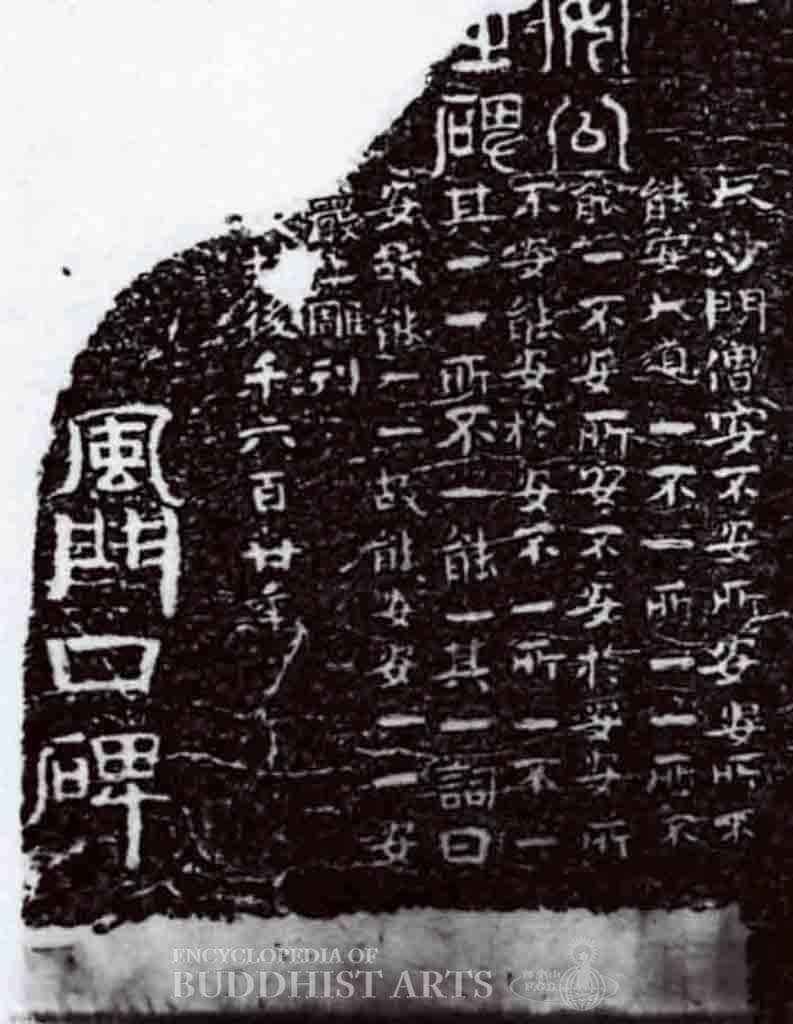 安公
之碑
大沙門僧安不安所安安所不
能安大道一不一所一一所不
能一不安所安不安於安安所
不安能安於安不一所一不一
其一一所不一能一其一詞曰
安故能一一故能安安一一安
嚴上雕刊
後千六百廿年
風門口碑
ENCYCLOPEDIA OF
BUDDHIST ARTS
F.G.B.